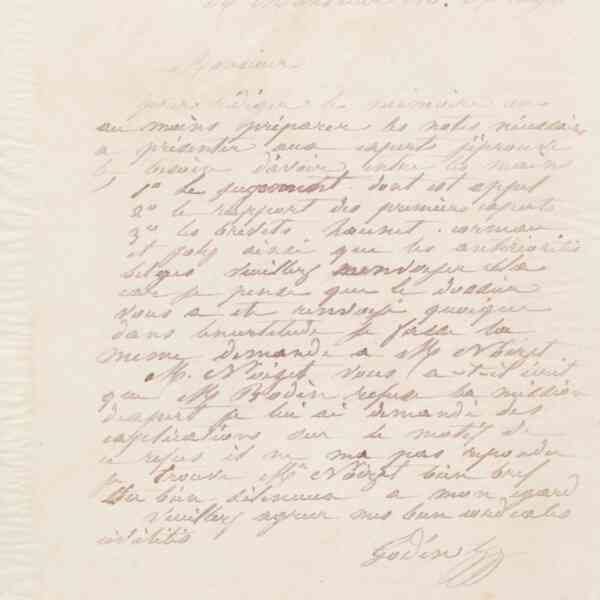 Monsieur
pour rédiger le mémoire ou
au moins préparer les notes nécessaires
a présenter aux experts j'éprouve
le besoin d'avoir entre les mains
1º Le jugement dont est appel
2º le rapport des premiers experts
3º les brevets
et ainsi que les antériorités
belges veuillez menvoyer cela
car je pense que le dossier
vous a eté renvoyé quoique
dans lincertitude je fasse la
meme demande a Mr Noizet
M. Noizet vous a-t-il écrit
que Mr Bodin refuse la mission
dexpert je lui ai demandé des
explications sur le motif de
ce refus il ne ma pas repondu
je trouve Mr Noizet bien bref
ou bien a mon egard
Veuillez agréer mes bien cordiales
civilités
Godin